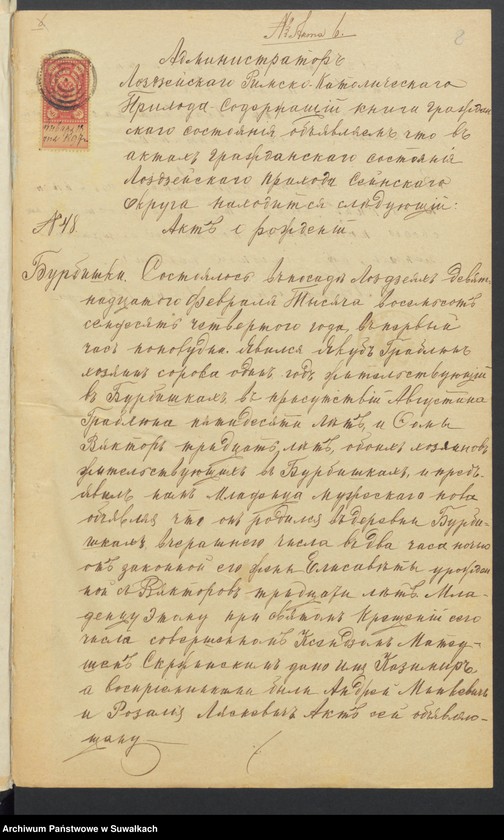 Къ Акта 6.
2
Администраторъ
Лоздзейскаго Римско-Католическаго
Прихода содержащій книги граждан
скаго состоянія объявляетъ что въ
актахъ гражданскаго состоянія
Лоздзейскаго прихода Сейнскаго
Округа находится слѣдующій:
№ 48. Актъ о рожденіи
Бурбишки. Состоялось въ посадѣ Лоздзеяхъ девят
надцатаго Февраля Тысяча восемьсотъ
семдесятъ четвертаго года, въ первый
часъ пополудни. Явился Якубъ
хозяинъ сорока одинъ годъ жительствующій
въ Бурбишкахъ въ присутствіи Августина
пятидесяти лѣтъ, и Сомы
Викторъ тридцать лѣтъ, обоихъ хозяиновъ
жительствующихъ въ Бурбишкахъ, и предъ-
явилъ намъ Младенца мужескаго пола
объявляя что онъ родился въ деревни Бурби-
шкахъ вчерашнего числа въ два часа ночью
отъ законной его жены Елисаветы урожден
ной Викторовъ тридцати лѣтъ Мла-
денцу этому при святомъ Крещеніи сего
числа совершенномъ Ксендзомъ Матеу-
шемъ дано имя Казимиръ,
а воспріемниками были Андрей Миткевичъ
и Розалія Ляскевичъ Актъ сей объявляю-
щему
Archiwum Państwowe w Suwałkach